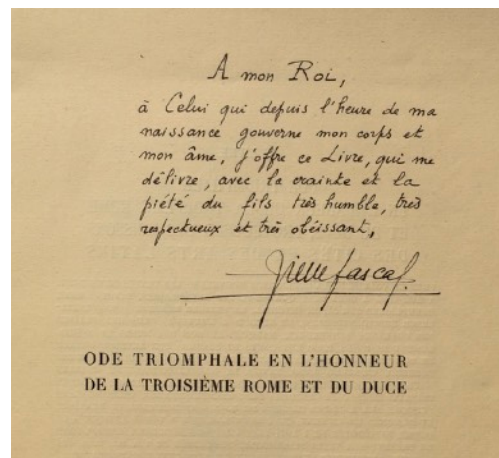 A mon Roi,
à Celui qui depuis l'heure de ma
naissance gouverne mon corps et
mon âme, j'offre ce Livre, qui me
délivre, avec la crainte et la
piété du fils très humble, très
respectueux et très obéissant,
Pierre Pascal.
ODE TRIOMPHALE EN L'HONNEUR
DE LA TROISIÈME ROME ET DU DUCE